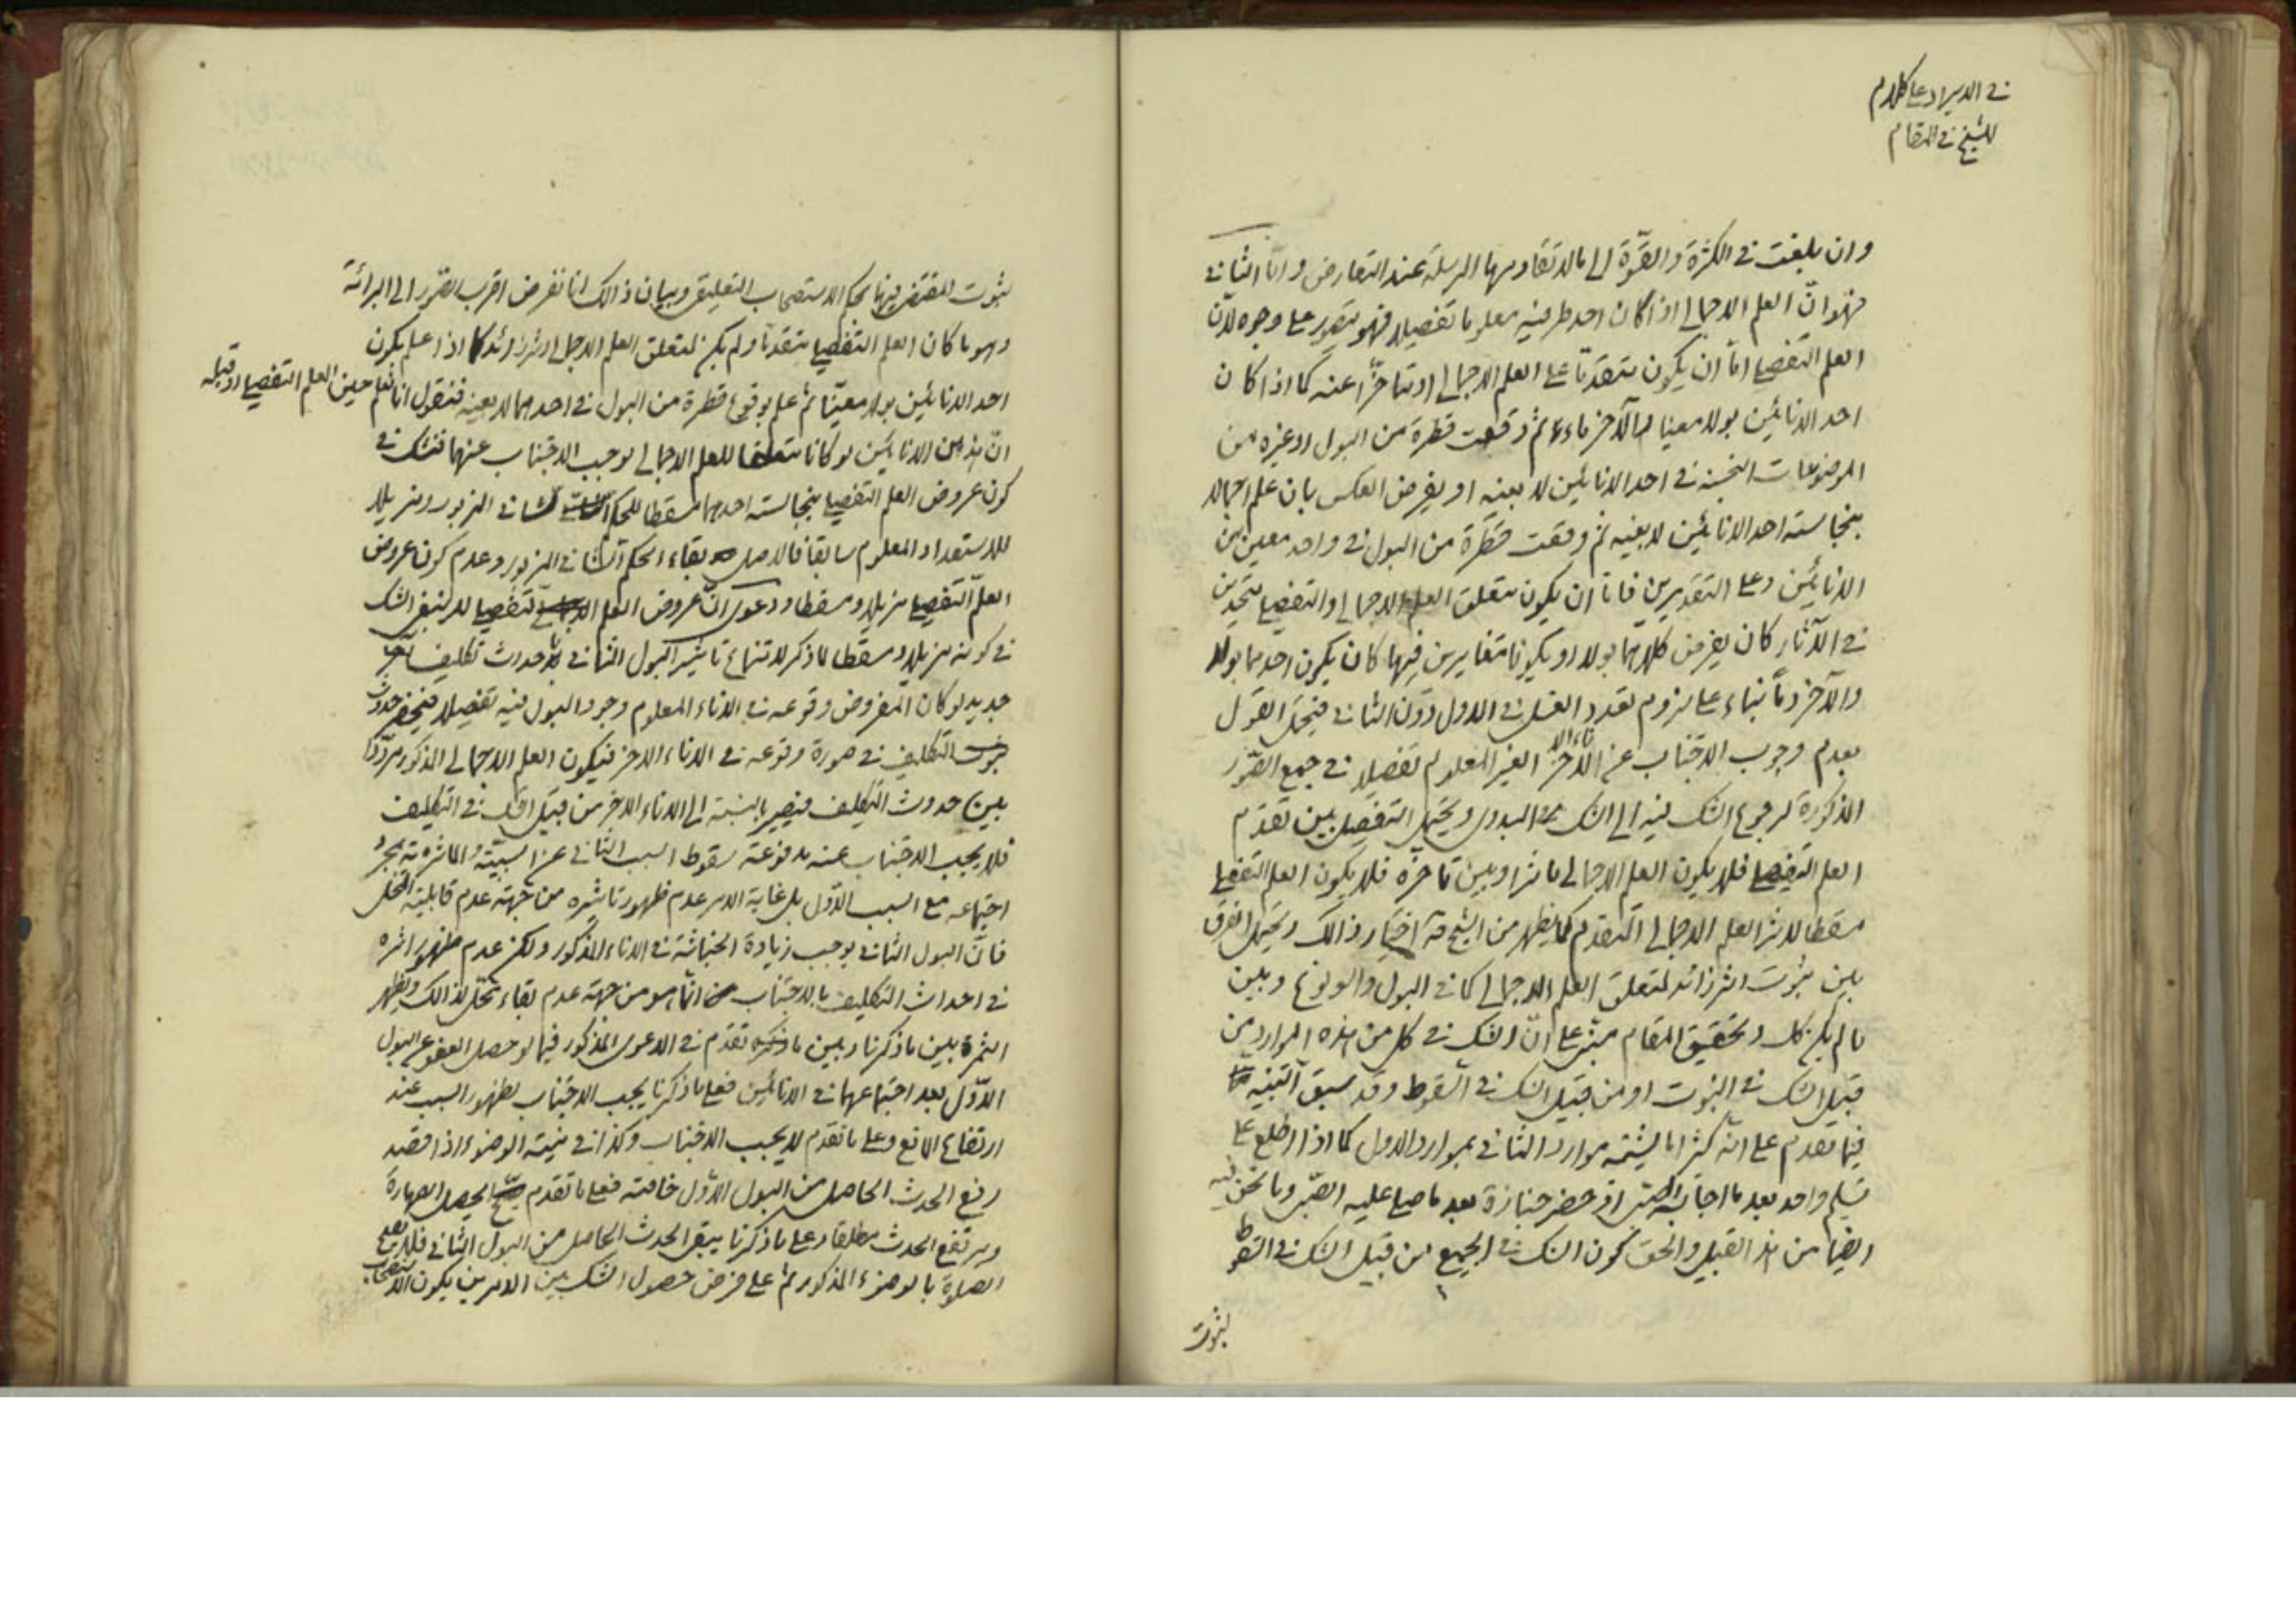 في الايراد على كلام
للشيخ في المقام
وان بلغت في الكثرة والقوة الى ما لا تقاومها المرسلة عند التعارض واما الثاني
فهو ان العلم الاجمالي اذا كان احد طرفيه معلوما تفصيلا فهو يتصور على وجوه لان
العلم التفصيلي اما ان يكون متقدما على العلم الاجمالي او متاخرا عنه كما اذا كان
احد الانائين بولا معينا والآخر ماء ثم وقعت قطرة من البول او غيره من
الموضوعات النجسة في احد الانائين لا بعينه او يفرض العكس بان علم اجمالا
بنجاسة احد الانائين لا بعينه ثم وقعت قطرة من البول في واحد معين من
الانائين وعلى التقديرين فاما ان يكون متعلق العلم الاجمالي والتفصيلي متحدين
في الآثار كان يفرض كلاهما بولا او يكونا متغايرين فيها كان يكون احدهما بولا
والآخر دما بناء على لزوم تعدد الغسل في الاول دون الثاني فيحتمل القول
بعدم وجوب الاجتناب عن الاناء الآخر الغير المعلوم تفصيلا في جميع الصور
المذكورة لرجوع الشك فيه الى الشك البدوي ويحتمل التفصيل بين تقدم
العلم التفصيلي فلا يكون العلم الاجمالي مؤثرا وبين تاخره فلا يكون العلم التفصيلي
مسقطا لاثر العلم الاجمالي المتقدم كما يظهر من الشيخ قده اختيار ذالك ويحتمل الفرق
بين ثبوت اثر زائد لمتعلق العلم الاجمالي كما في البول والولوغ وبين
ما لم يكن كك وتحقيق المقام مبني على ان الشك في كل من هذه الموارد من
قبيل الشك في الثبوت او من قبيل الشك في السقوط وقد سبق التنبيه
فيما تقدم على انه كثيرا ما يشتبه موارد الثاني بموارد الاول كما اذا اطلع على
تسليم واحد بعد ما اجابه الصبي او حضر جنازة بعد ما صلى عليه الصبي وما نحن فيه
ايضا من هذا القبيل والحق كون الشك في الجميع من قبيل الشك في السقوط
لثبوت
لثبوت المقتضي فيها بحكم الاستصحاب التعليقي وبيان ذالك انا نفرض اقرب الصور الى البرائة
وهو ما كان العلم التفصيلي متقدما ولم يكن لمتعلق العلم الاجمالي اثر زائد كما اذا علم بكون
احد الانائين بولا معينا ثم علم بوقوع قطرة من البول في احدهما لا بعينه فنقول انا نعلم حين العلم التفصيلي او قبله
ان هذين الانائين لو كانا متعلقا للعلم الاجمالي لوجب الاجتناب عنهما فنشك في
كون عروض العلم التفصيلي بنجاسة احدهما مسقطا للحكم الشاني المزبور ومزيلا
للاستعداد المعلوم سابقا فالاصل بقاء الحكم الشاني المزبور وعدم كون عروض
العلم التفصيلي مزيلا ومسقطا ودعوى ان عروض العلم التفصيلي لا ينبغي الشك
في كونه مزيلا ومسقطا لما ذكر لامتناع تاثير البول الثاني في احداث تكليف آخر
جديد لو كان المفروض وقوعه في الاناء المعلوم وجود البول فيه تفصيلا فينحصر حدوث
التكليف في صورة وقوعه في الاناء الاخر فيكون العلم الاجمالي المذكور مرددا
بين حدوث التكليف فيصير بالنسبة الى الاناء الاخر من قبيل الشك في التكليف
فلا يجب الاجتناب عنه مدفوعة سقوط السبب الثاني عن السببية والمؤثرية بمجرد
اجتماعه مع السبب الاول بل غاية الامر عدم ظهور تاثيره من جهة عدم قابلية المحل
فان البول الثاني يوجب زيادة الخباثة في الاناء المذكور ولكن عدم ظهور اثره
في احداث التكليف بالاجتناب انما هو من جهة عدم بقاء محل لذالك ويظهر
الثمرة بين ما ذكرنا وبين ما تقدم في الدعوى المذكور فيما لو حصل العفو عن البول
الاول بعد اجتماعهما في الانائين فعلى ما ذكرنا يجب الاجتناب لظهور السبب عند
ارتفاع المانع وعلى ما تقدم لا يجب الاجتناب وكذا في نية الوضوء اذا قصد
رفع الحدث الحاصل من البول الاول خاصة فعلى ما تقدم يحصل الطهارة
ويرتفع الحدث مطلقا وعلى ما ذكرنا يبقى الحدث الحاصل من البول الثاني فلا يصح
الصلوة بالوضوء المذكور ثم على فرض حصول الشك بين الامرين يكون الاستصحاب